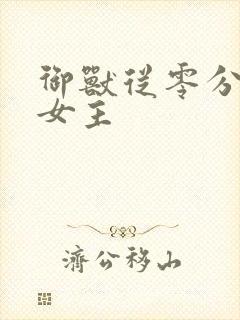 御獸從零分
女主
濟公移山